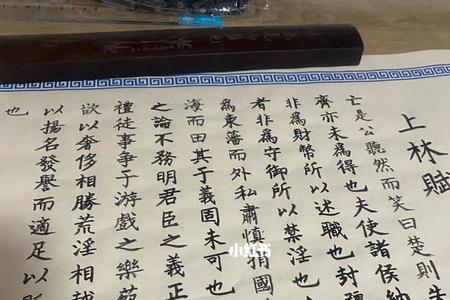 上林賦
亡是公聽然而笑曰楚則失
齊亦未為得也夫使諸侯納
非為財幣所以述職也封疆
者非為守御所以禁淫也
為東藩而外私肅慎捐國
海而田其于義固未可也
之論不務明君臣之義正
禮徒事爭于游戲之樂苑
欲以奢侈相勝荒淫相越
以揚名發譽而適足以
也
小红书